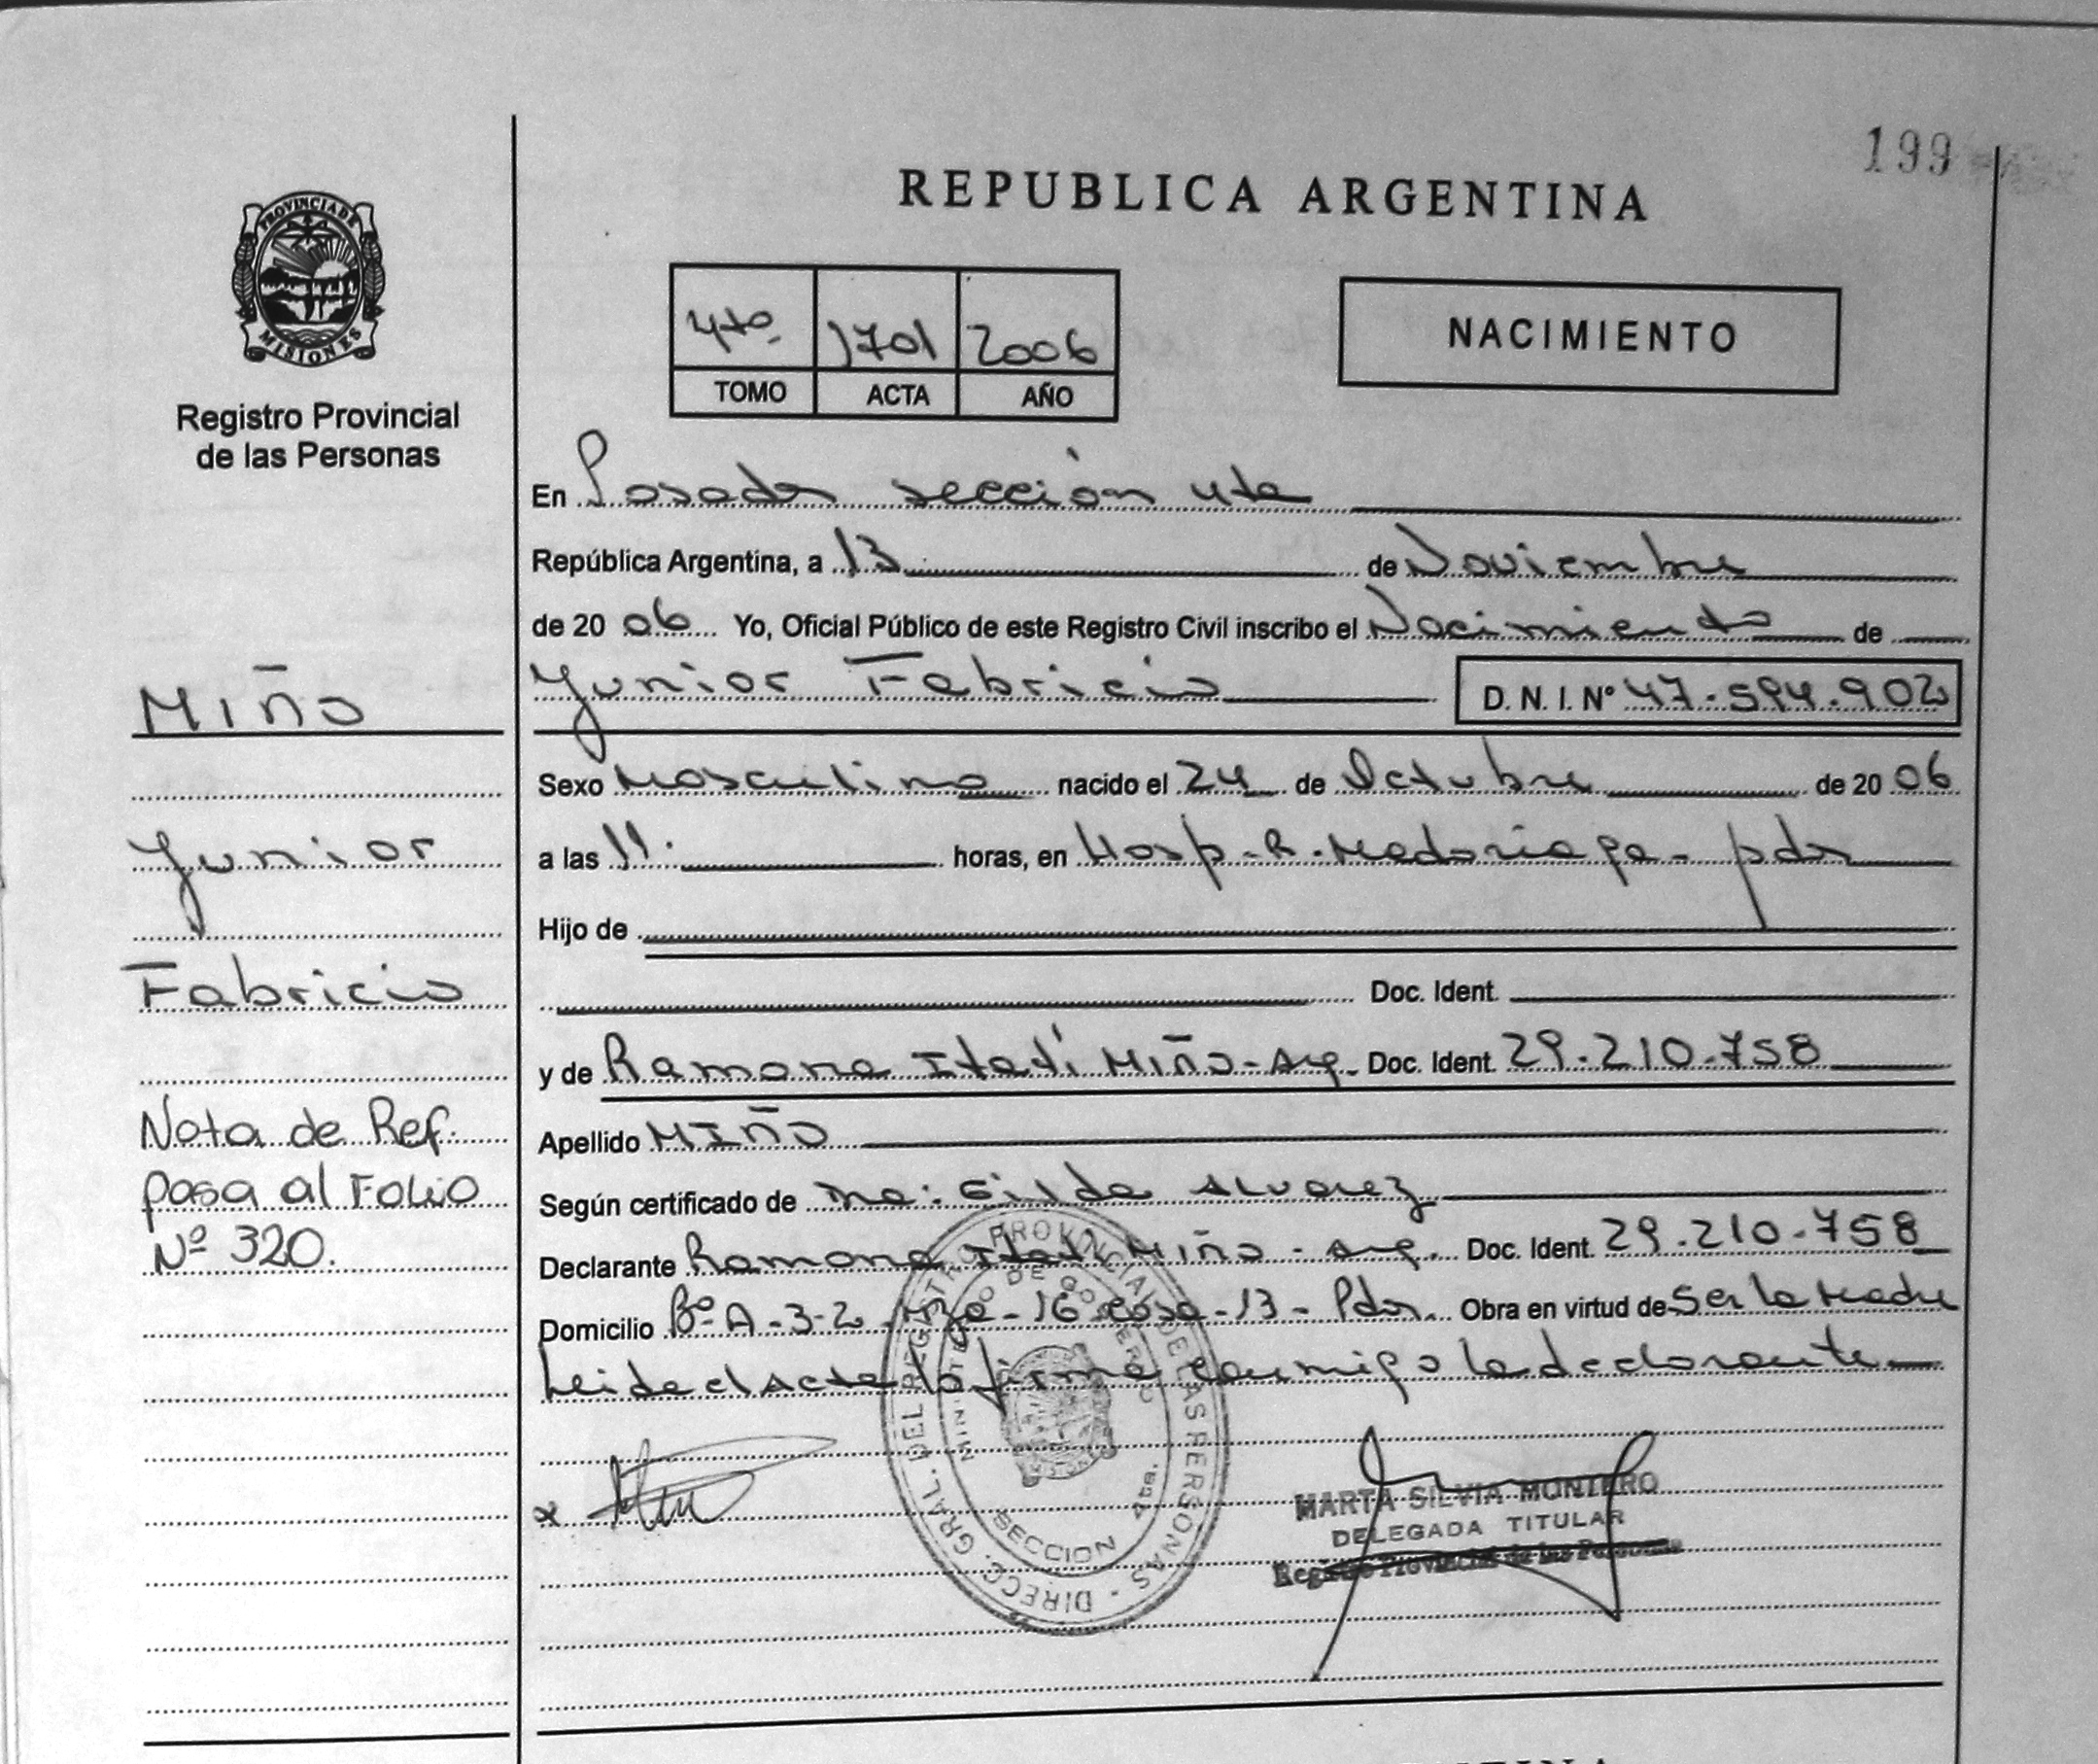 199
REPUBLICA ARGENTINA
PROVINCIA DE
MISIONES
Registro Provincial
de las Personas
4to 1701 2006
TOMO ACTA AÑO
NACIMIENTO
En Posadas sección 4ta
República Argentina, a 13 de Noviembre
de 2006 Yo, Oficial Público de este Registro Civil inscribo el Nacimiento de
Miño
Junior Fabricio D. N. I. N° 47.594.902
Sexo Masculino nacido el 24 de Octubre de 2006
Junior
a las 11. horas, en Hosp. R. Madariaga - pdas
Hijo de
Fabricio
Doc. Ident.
y de Ramona Itatí Miño - Arg. Doc. Ident. 29.210.758
Nota de Ref.
pasa al Folio
Nº 320.
Apellido Miño
Según certificado de Gilda Alvarez
Declarante Ramona Itatí Miño - Arg. Doc. Ident. 29.210.758
Domicilio Bº A-3-2 - Mza - 16 casa - 13 - Pdas. Obra en virtud de ser la Madre
Leida el acta la firma conmigo la declarante
DIRECC. GRAL. DEL REGISTRO PROVINCIAL DE LAS PERSONAS
MINISTERIO DE GOBIERNO
SECCION 4ta.
MARTA SILVIA MONTERO
DELEGADA TITULAR
Registro Provincial de las Personas